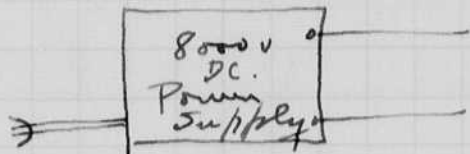 8000 v
DC.
Power
Supply